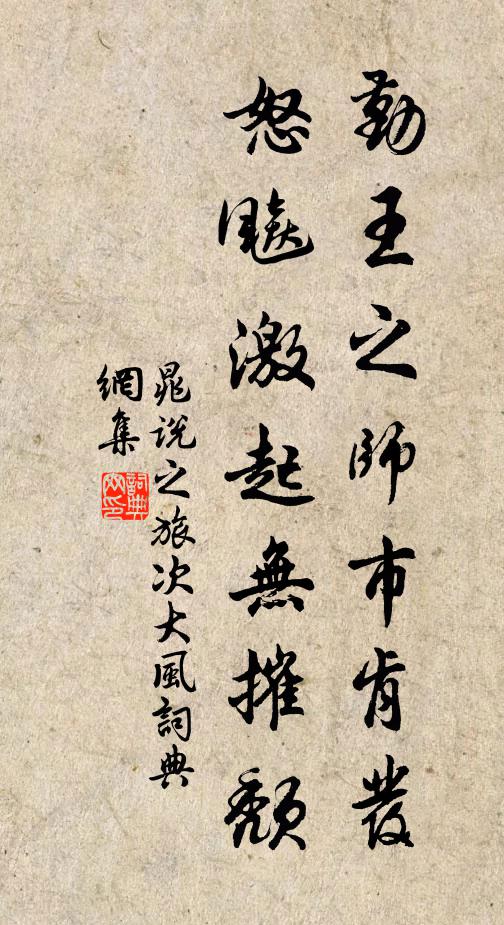 勤王之師市肯發
怒飈激起無摧頹
晁說之旅次大風詞典
網集
詞典
网印